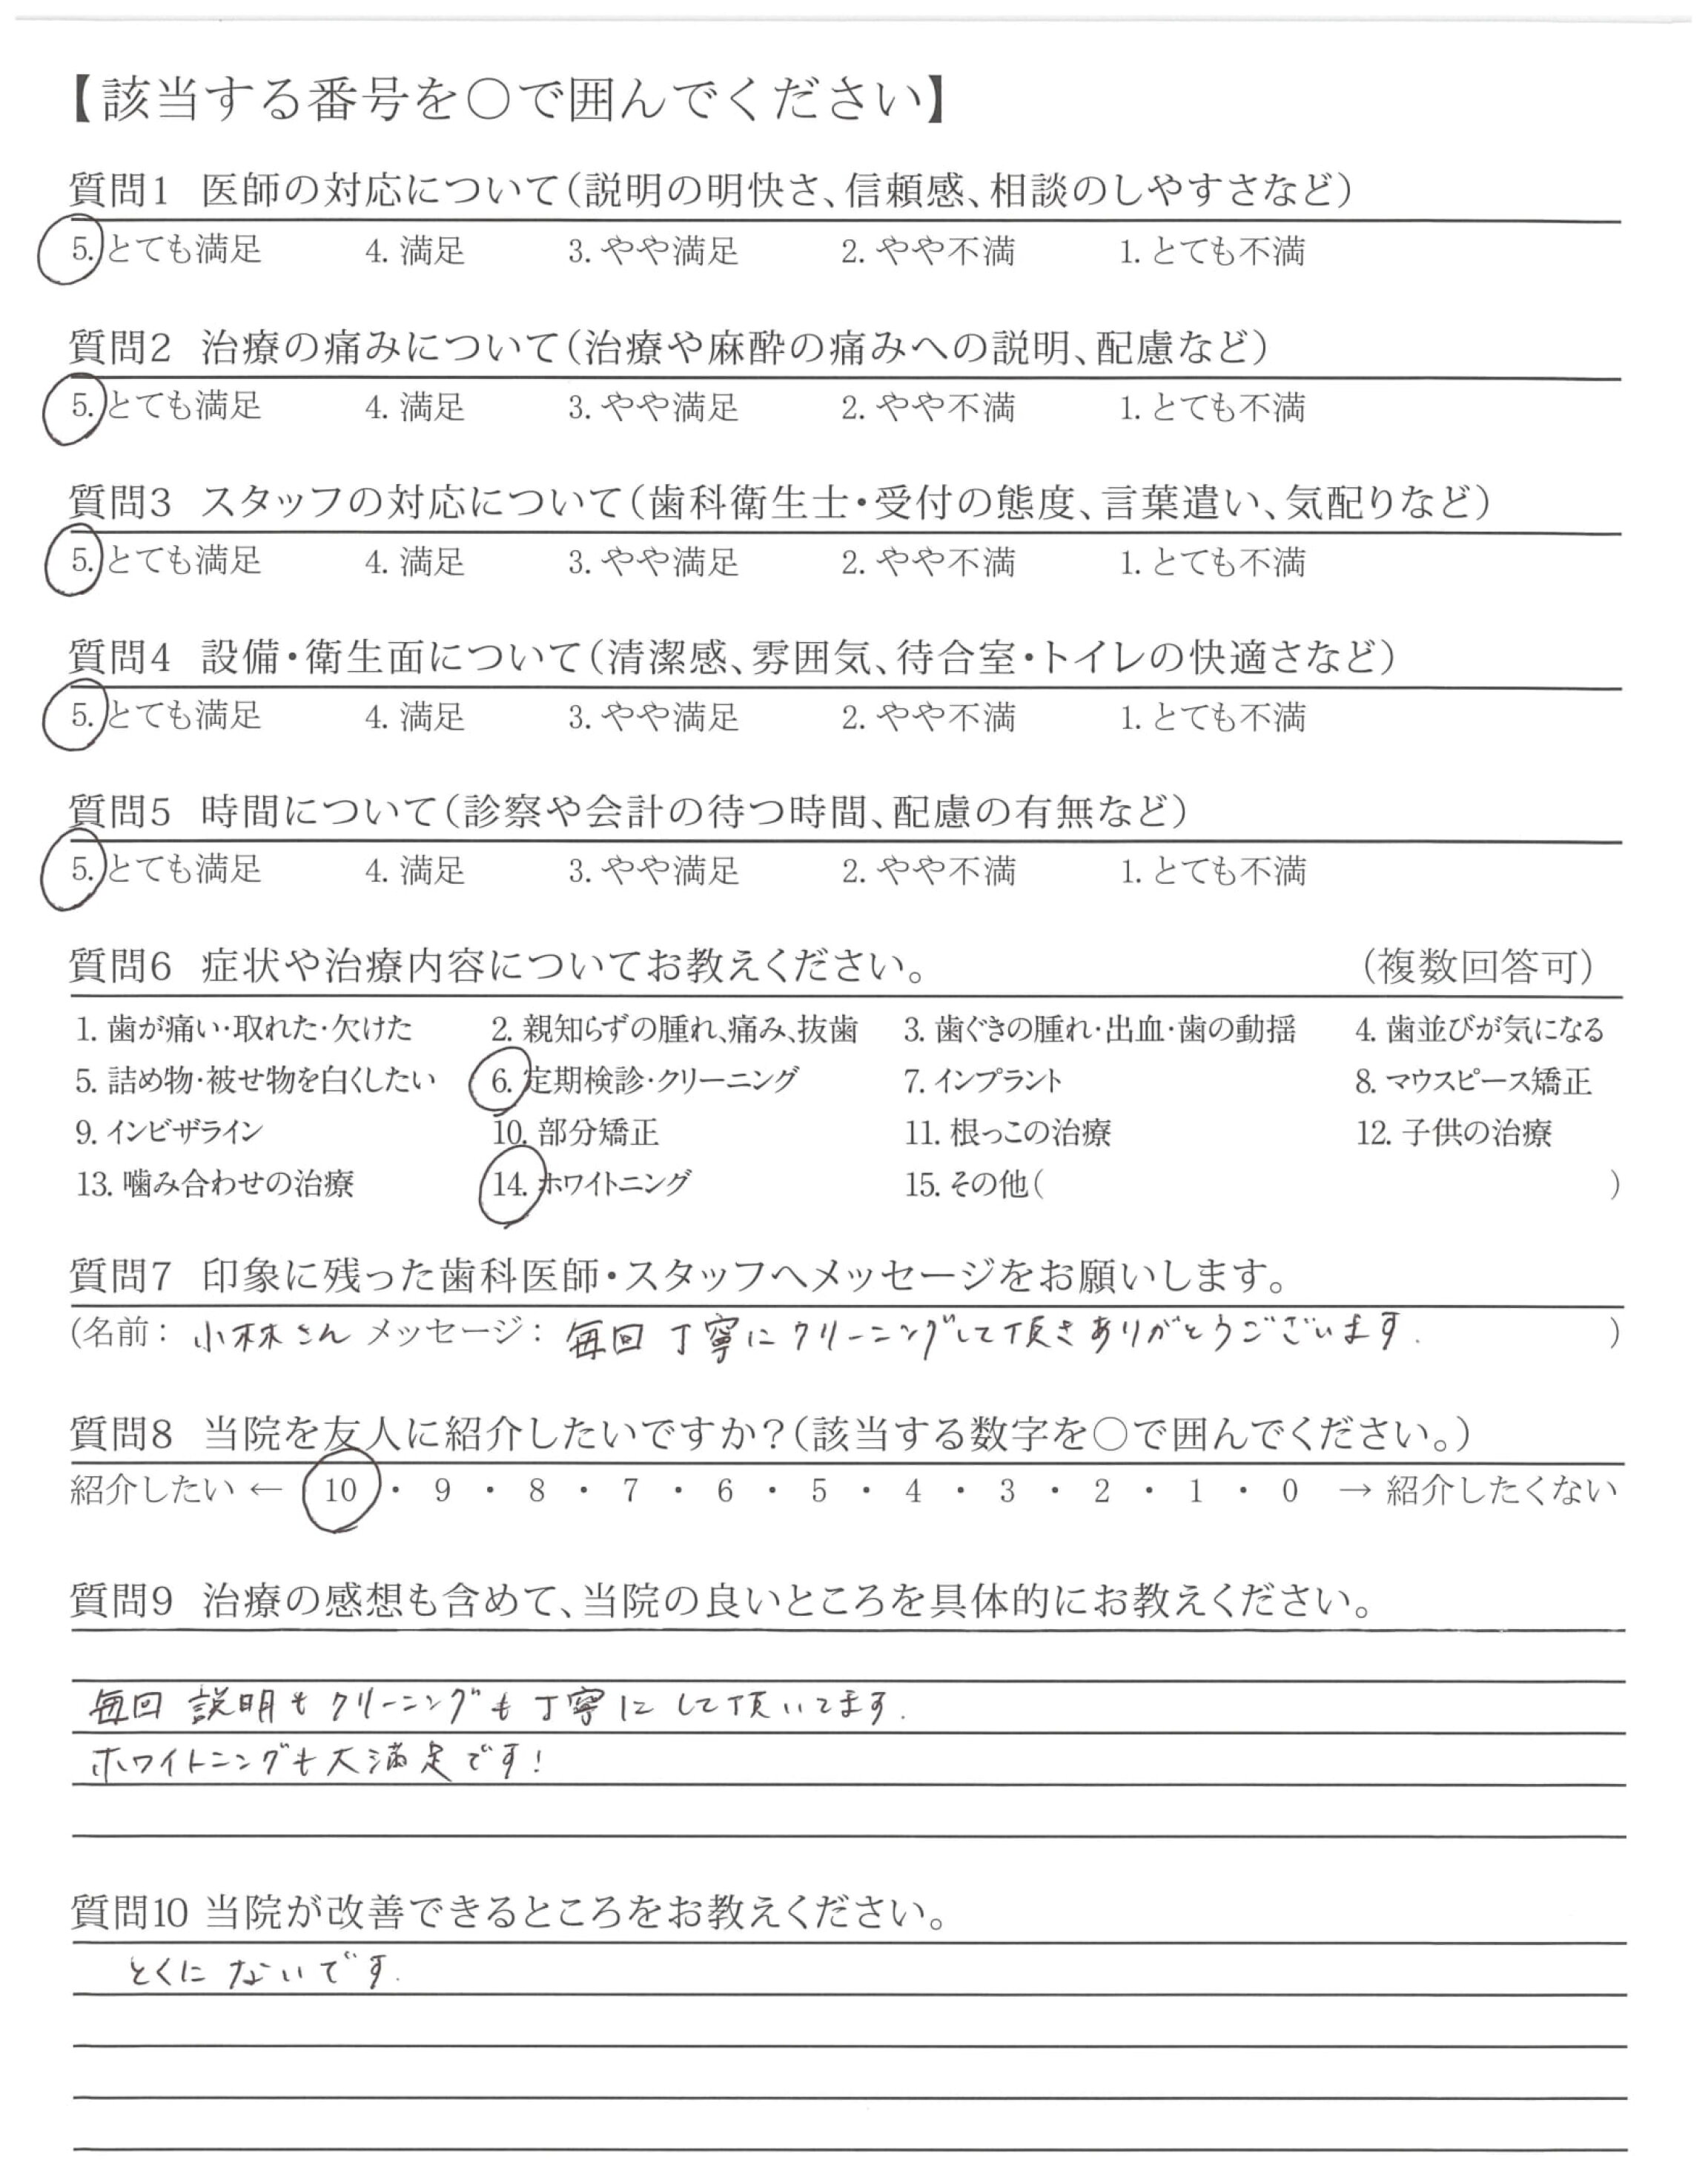 【該当する番号を○で囲んでください】
質問1 医師の対応について(説明の明快さ、信頼感、相談のしやすさなど)
5. とても満足 4. 満足 3. やや満足 2. やや不満 1. とても不満
質問2 治療の痛みについて(治療や麻酔の痛みへの説明、配慮など)
5. とても満足 4. 満足 3. やや満足 2. やや不満 1. とても不満
質問3 スタッフの対応について(歯科衛生士・受付の態度、言葉遣い、気配りなど)
5. とても満足 4. 満足 3. やや満足 2. やや不満 1. とても不満
質問4 設備・衛生面について(清潔感、雰囲気、待合室・トイレの快適さなど)
5. とても満足 4. 満足 3. やや満足 2. やや不満 1. とても不満
質問5 時間について(診察や会計の待つ時間、配慮の有無など)
5. とても満足 4. 満足 3. やや満足 2. やや不満 1. とても不満
質問6 症状や治療内容についてお教えください。 (複数回答可)
1. 歯が痛い・取れた・欠けた 2. 親知らずの腫れ、痛み、抜歯 3. 歯ぐきの腫れ・出血・歯の動揺 4. 歯並びが気になる
5. 詰め物・被せ物を白くしたい 6. 定期検診・クリーニング 7. インプラント 8. マウスピース矯正
9. インビザライン 10. 部分矯正 11. 根っこの治療 12. 子供の治療
13. 噛み合わせの治療 14. ホワイトニング 15. その他( )
質問7 印象に残った歯科医師・スタッフへメッセージをお願いします。
(名前: 小林さん メッセージ: 毎回 丁寧にクリーニングして頂きありがとうございます. )
質問8 当院を友人に紹介したいですか?(該当する数字を○で囲んでください。)
紹介したい ← 10 ・ 9 ・ 8 ・ 7 ・ 6 ・ 5 ・ 4 ・ 3 ・ 2 ・ 1 ・ 0 → 紹介したくない
質問9 治療の感想も含めて、当院の良いところを具体的にお教えください。
毎回 説明もクリーニングも丁寧にして頂いてます.
ホワイトニングも大満足です!
質問10 当院が改善できるところをお教えください。
とくにないです.